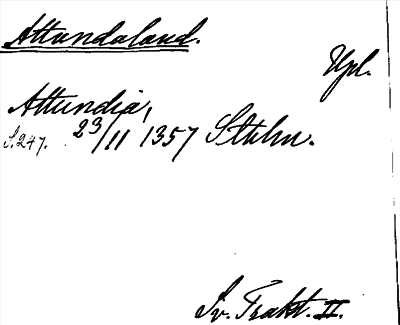 Attundaland.
Upl.
Attundia,
S. 247. 23/11 1357 Sthlm.
Sv. Trakt. II.